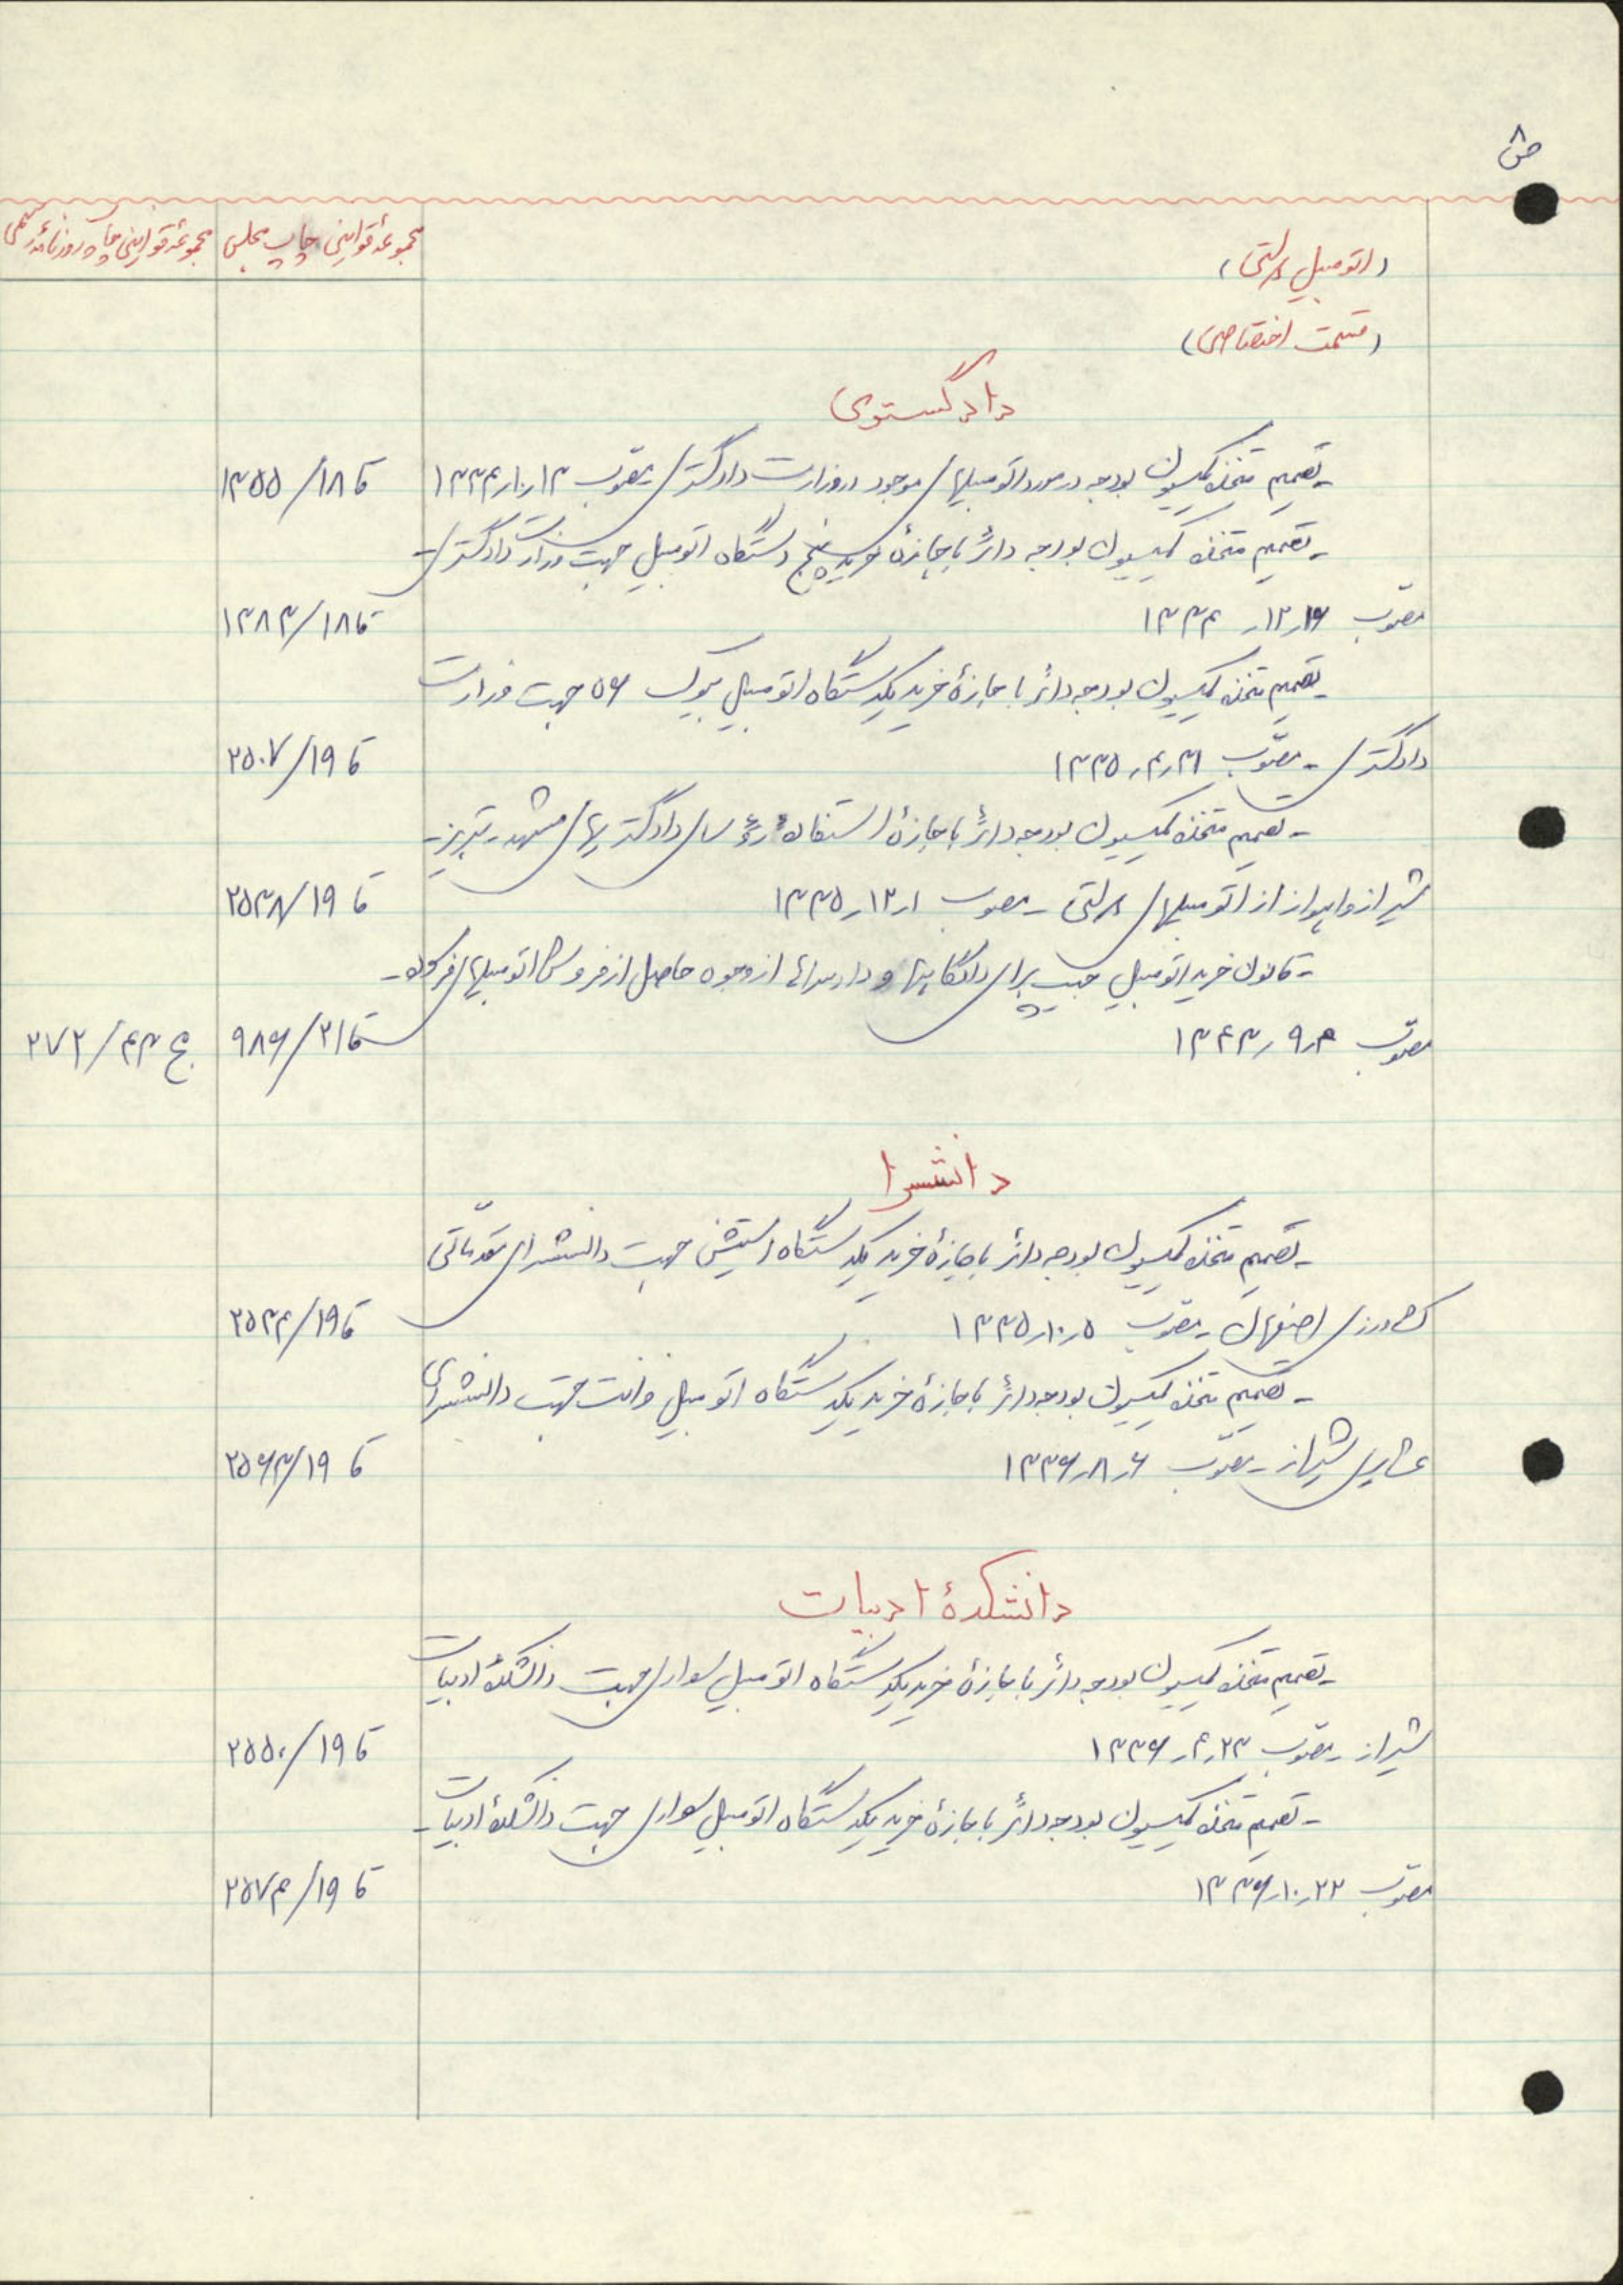 ص ۸
مجموعهٔ قوانین چاپ مجلس
مجموعهٔ قوانین چاپ روزنامهٔ رسمی
(اتومبیل دولتی)
(قسمت اختصاصی)
دادگستری
- تصمیم متخذه کمیسیون بودجه در مورد اتومبیلهای موجود در وزارت دادگستری مصوب ۱۳ر۱۰ر۱۳۳۴ ق ۱۸/۱۳۵۵
- تصمیم متخذه کمیسیون بودجه دائر باجازهٔ خرید پنج دستگاه اتومبیل جهت وزارت دادگستری -
مصوب ۱۶ر۱۲ر۱۳۳۴ ق ۱۸/۱۳۸۳
- تصمیم متخذه کمیسیون بودجه دائر باجازهٔ خرید یکدستگاه اتومبیل بیوک ۵۶ جهت وزارت
دادگستری - مصوب ۳۱ر۴ر۱۳۳۵ ق ۱۹/۲۵۰۷
- تصمیم متخذه کمیسیون بودجه دائر باجازهٔ استفادهٔ رؤسای دادگستریهای مشهد - تبریز -
شیراز و اهواز از اتومبیلهای دولتی - مصوب ۱ر۱۲ر۱۳۳۵ ق ۱۹/۲۵۳۸
- قانون خرید اتومبیل جیپ برای دادگاهها و دادسراها از وجوه حاصل از فروش اتومبیلهای فرسوده -
مصوب ۴ر۹ر۱۳۴۳ ق ۲۱/۹۸۶ ج ۴۳/۲۷۲
دانشسرا
- تصمیم متخذه کمیسیون بودجه دائر باجازهٔ خرید یکدستگاه استیشن جهت دانشسرای مقدماتی
کشاورزی اصفهان - مصوب ۵ر۱۰ر۱۳۳۵ ق ۱۹/۲۵۳۴
- تصمیم متخذه کمیسیون بودجه دائر باجازهٔ خرید یکدستگاه اتومبیل وانت جهت دانشسرای
عشایری شیراز - مصوب ۶ر۸ر۱۳۳۶ ق ۱۹/۲۵۶۳
دانشکدهٔ ادبیات
- تصمیم متخذه کمیسیون بودجه دائر باجازهٔ خرید یکدستگاه اتومبیل سواری جهت دانشکدهٔ ادبیات
شیراز - مصوب ۲۳ر۴ر۱۳۳۶ ق ۱۹/۲۵۵۰
- تصمیم متخذه کمیسیون بودجه دائر باجازهٔ خرید یکدستگاه اتومبیل سواری جهت دانشکدهٔ ادبیات -
مصوب ۲۲ر۱۰ر۱۳۳۶ ق ۱۹/۲۵۷۴